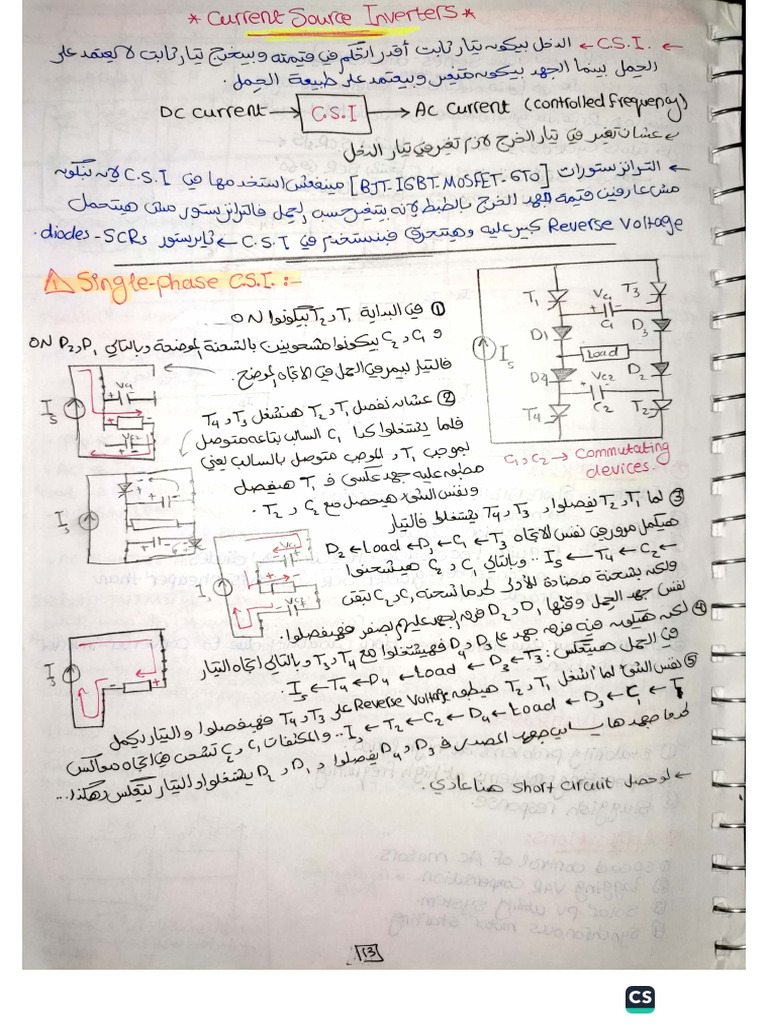 * Current Source Inverters *
← C.S.I. ← الدخل بيكون تيار ثابت أقدر اتحكم في قيمته وبيخرج تيار ثابت لا يعتمد على
الحمل بينما الجهد بيكون متغير وبيعتمد على طبيعة الحمل.
DC current → C.S.I → AC current (controlled frequency)
عشان تغير في تيار الخرج لازم تغير في تيار الدخل.
← الترانزستورات [BJT-IGBT-MOSFET-GTO] مينفعش استخدمها في C.S.I لانه بتكون
مش عارفين قيمة جهد الخرج بالظبط لإنه بيتغير حسب الحمل فالترانزستور مش هيتحمل
Reverse Voltage كبير عليه وهيتحرق فبنستخدم في C.S.I ← ثايرستور diodes - SCRs.
⚠ Single-phase C.S.I. :-
① في البداية T1 و T2 بيكونوا ON
و C1 و C2 بيكونوا مشحونين بالشحنة الموضحة وبالتالي D1 و D2 ON
فالتيار بيمر في الحمل في الاتجاه الموضح.
T1 Vc1 T3
C1
D1 D3
Is Load
D4 D2
Vc2
C2
T4 T2
C1 و C2 → Commutating
devices.
Is Vc1
Vc2
② عشان نفصل T1 و T2 هنشغل T3 و T4
فلما يشتغلوا كدا C1 السالب بتاعه متوصل
بموجب T1 و الموجب متوصل بالسالب يعني
مطبق عليه جهد عكسي ف T1 هيفصل
ونفس الشئ هيحصل مع C2 و T2.
Is
③ لما T1 و T2 يفصلوا و T3 و T4 يشتغلوا فالتيار
هيكمل مرور في نفس الاتجاه T3 ← C1 ← D1 ← Load ← D2
← C2 ← T4 ← Is .. وبالتالي C1 و C2 هيشحنوا
ولكن بشحنة مضادة للأولى لحد ما شحنة C1 و C2 تبقى
نفس جهد الحمل وقتها D1 و D2 فرق الجهد عليهم الصفر فهيفصلوا.
Is Vc1
④ لكن هيكون فيه فرق جهد على D3 و D4 فهيشتغلوا مع T3 و T4 وبالتالي اتجاه التيار
في الحمل هينعكس: T3 ← D3 ← Load ← D4 ← T4 ← Is.
Is
⑤ نفس الشئ لما أشغل T1 و T2 هيطبق Reverse Voltage على T3 و T4 فهيفصلوا والتيار يكمل
T1 ← C1 ← D3 ← Load ← D4 ← C2 ← T2 ← Is .. والمكثفات C1 و C2 تشحن في اتجاه معاكس
لحد ما جهدها يساوي جهد المصدر ف D3 و D4 يفصلوا و D1 و D2 يشتغلوا والتيار ينعكس وهكذا...
← لو حصل Short Circuit هنا عادي.
13
CS